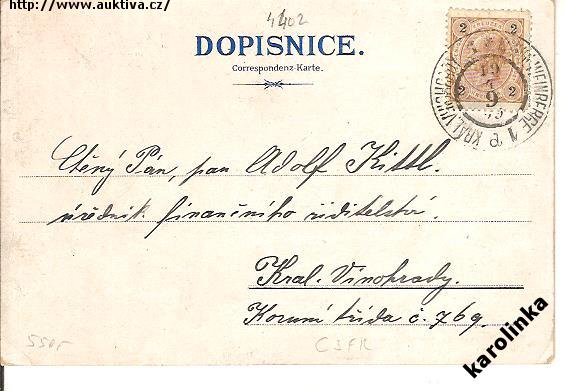 http://www.auktiva.cz/
4402
DOPISNICE.
Correspondenz-Karte.
2 2
KRÁL. VINOHRADY 1 WEINBERGE
19
9
95
Ctěný Pán, pan Adolf Kittl.
úředník finančního ředitelství.
Král. Vinohrady.
Korunní třída č. 769.
550,-
CSFR
karolinka